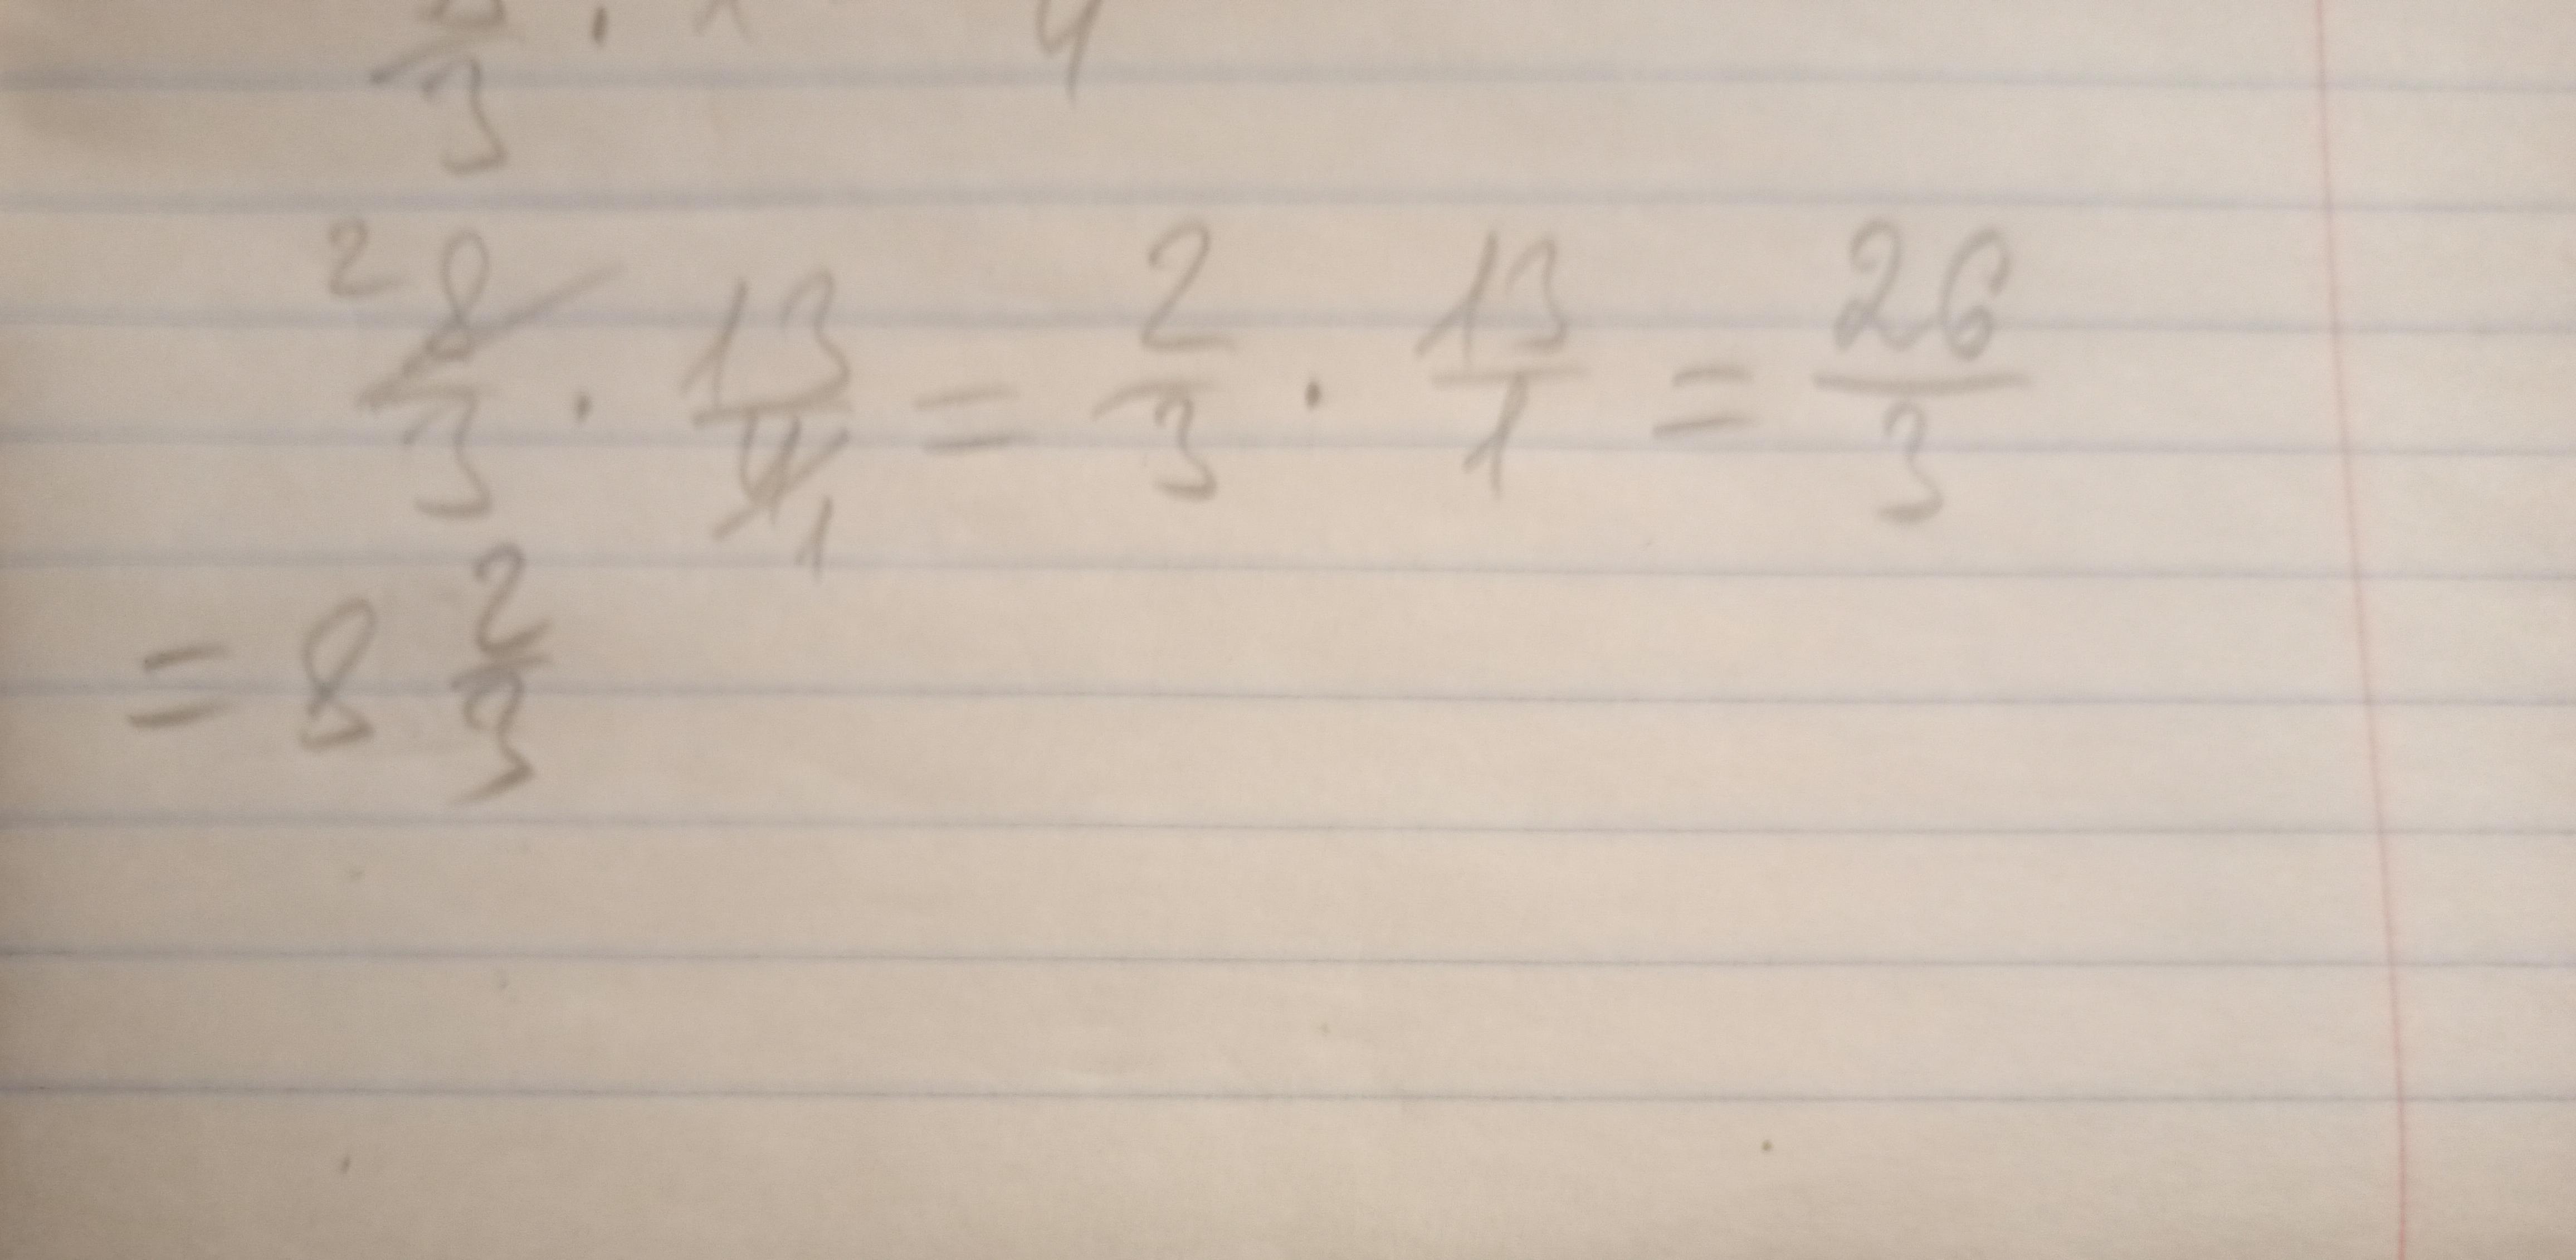 3
2 8/3 · 13/4 1 = 2/3 · 13/1 = 26/3
= 8 2/3